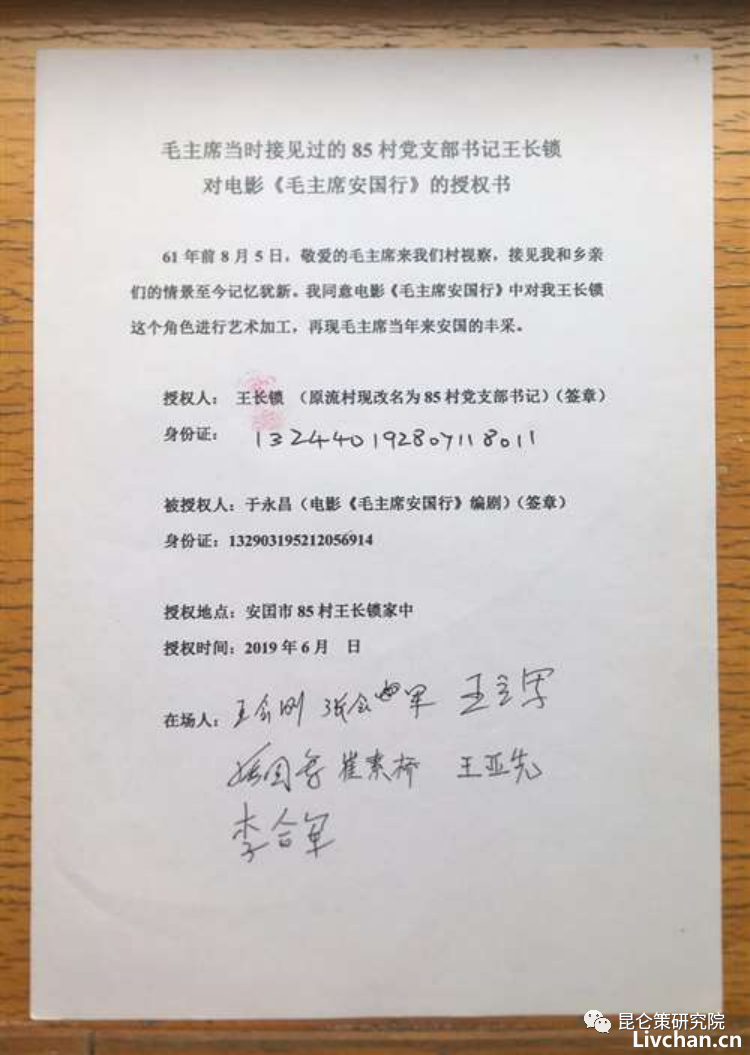 毛主席当时接见过的85村党支部书记王长锁
对电影《毛主席安国行》的授权书
61年前8月5日，敬爱的毛主席来我们村视察，接见我和乡亲
们的情景至今记忆犹新。我同意电影《毛主席安国行》中对我王长锁
这个角色进行艺术加工，再现毛主席当年来安国的丰采。
授权人： 王长锁 （原流村现改名为85村党支部书记）（签章）
身份证： 132440192807118011
被授权人：于永昌（电影《毛主席安国行》编剧）（签章）
身份证：132903195212056914
授权地点：安国市85村王长锁家中
授权时间：2019年6月 日
在场人：王会刚 张会 王立军
崔素桥 王亚先
李合军
昆仑策研究院
Livchan.cn